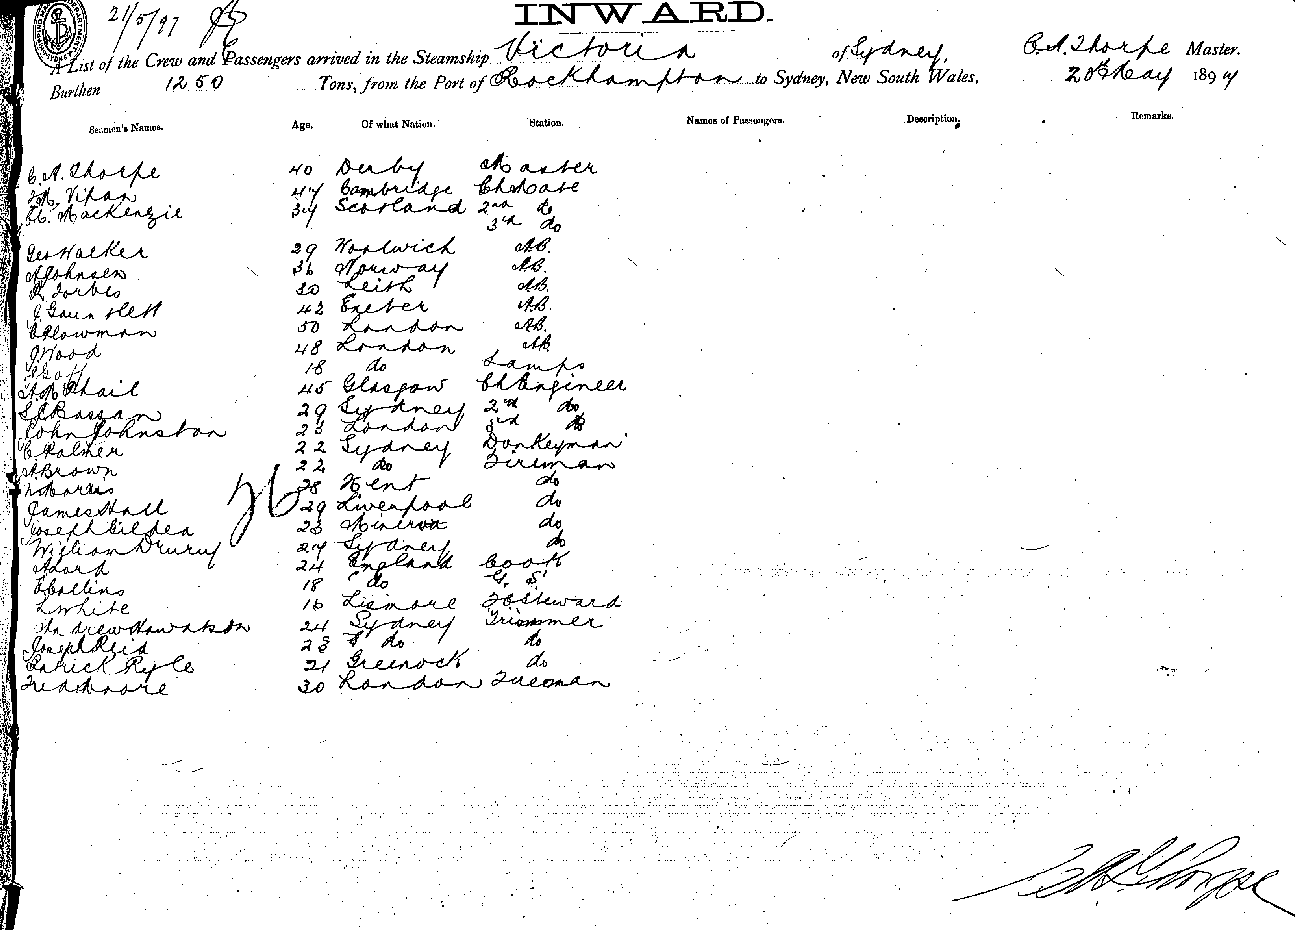 21/5/97
INWARD.
A List of the Crew and Passengers arrived in the Steamship Victoria of Sydney, C. A. Thorpe Master.
Burthen 1250 Tons, from the Port of Rockhampton to Sydney, New South Wales, 20th May 1897
Seamen's Names. Age. Of what Nation. Station. Names of Passengers. Description. Remarks.
C. A. Thorpe 40 Derby Master
Vivian 47 Cambridge Ch Mate
MacKenzie 34 Scotland 2nd do
3rd do
Geo Walker 29 Woolwich AB.
A Johnsen 36 Norway AB.
R Forbes 30 Leith AB.
J Gauntlett 42 Exeter AB.
C Plowman 50 London AB.
J Wood 48 London AB
Goff 18 do Lamps
McPhail 45 Glasgow Ch Engineer
Bassan 29 Sydney 2nd do
John Johnston 23 London 3rd do
C Palmer 22 Sydney Donkeyman
A Brown 22 do Fireman
Morris 38 Kent do
James Hall 29 Liverpool do
Joseph Gildea 23 Minerva do
William Drury 27 Sydney do
A Lord 24 England Cook
E Collins 18 do G. S.
L White 16 Lismore FC Steward
Andrew Howatson 24 Sydney Trimmer
Joseph Reid 23 do do
Patrick Ryle 21 Greenock do
Fred Moore 30 London Fireman
26
C A Thorpe